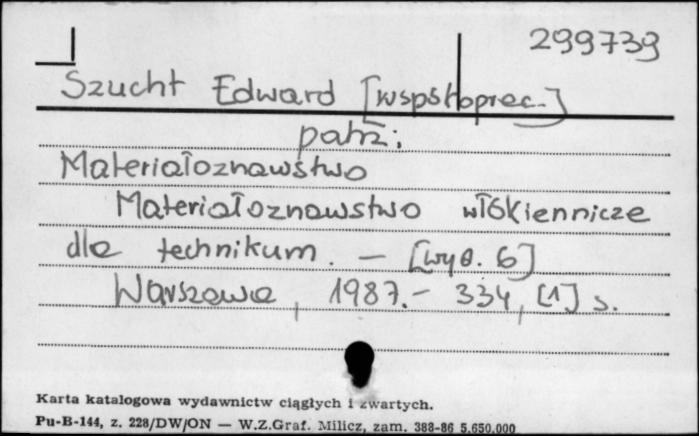 299739
Szucht Edward [współoprac.]
patrz:
Materiałoznawstwo
Materiałoznawstwo włókiennicze
dla technikum. — [wyd. 6]
Warszawa, 1987.- 334, [1] s.
Karta katalogowa wydawnictw ciągłych i zwartych.
Pu-B-144, z. 228/DW/ON — W.Z.Graf. Milicz, zam. 388-86 5.650.000